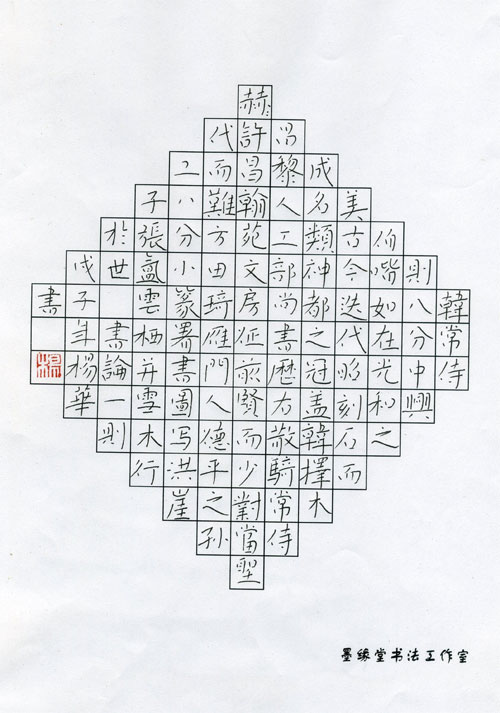 韓常侍
則八分中興
伯喈如在光和之
美古今迭代昭刻石而
成名類神都之冠盖韓擇木
昌黎人工部尚書歷右散騎常侍
赫:許昌翰苑文房征前賢而少對當聖
代而難方田琦雁門人德平之孫
二八分小篆署書圖写洪崖
子張氳雲栖并雪木行
於世 書論一則
戌子年楊華
書
楊
墨缘堂书法工作室